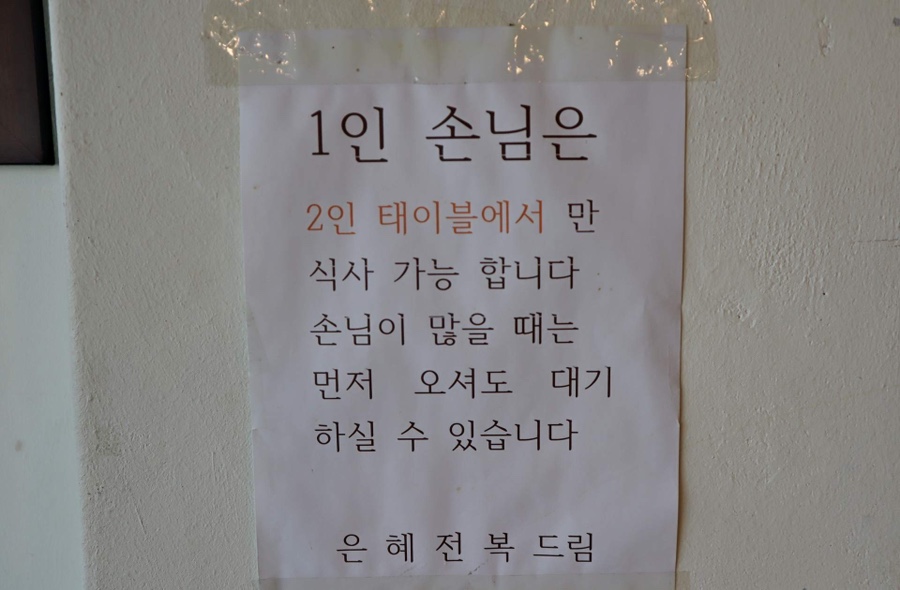 1인 손님은
2인 태이블에서 만
식사 가능 합니다
손님이 많을 때는
먼저 오셔도 대기
하실 수 있습니다
은 혜 전 복 드림